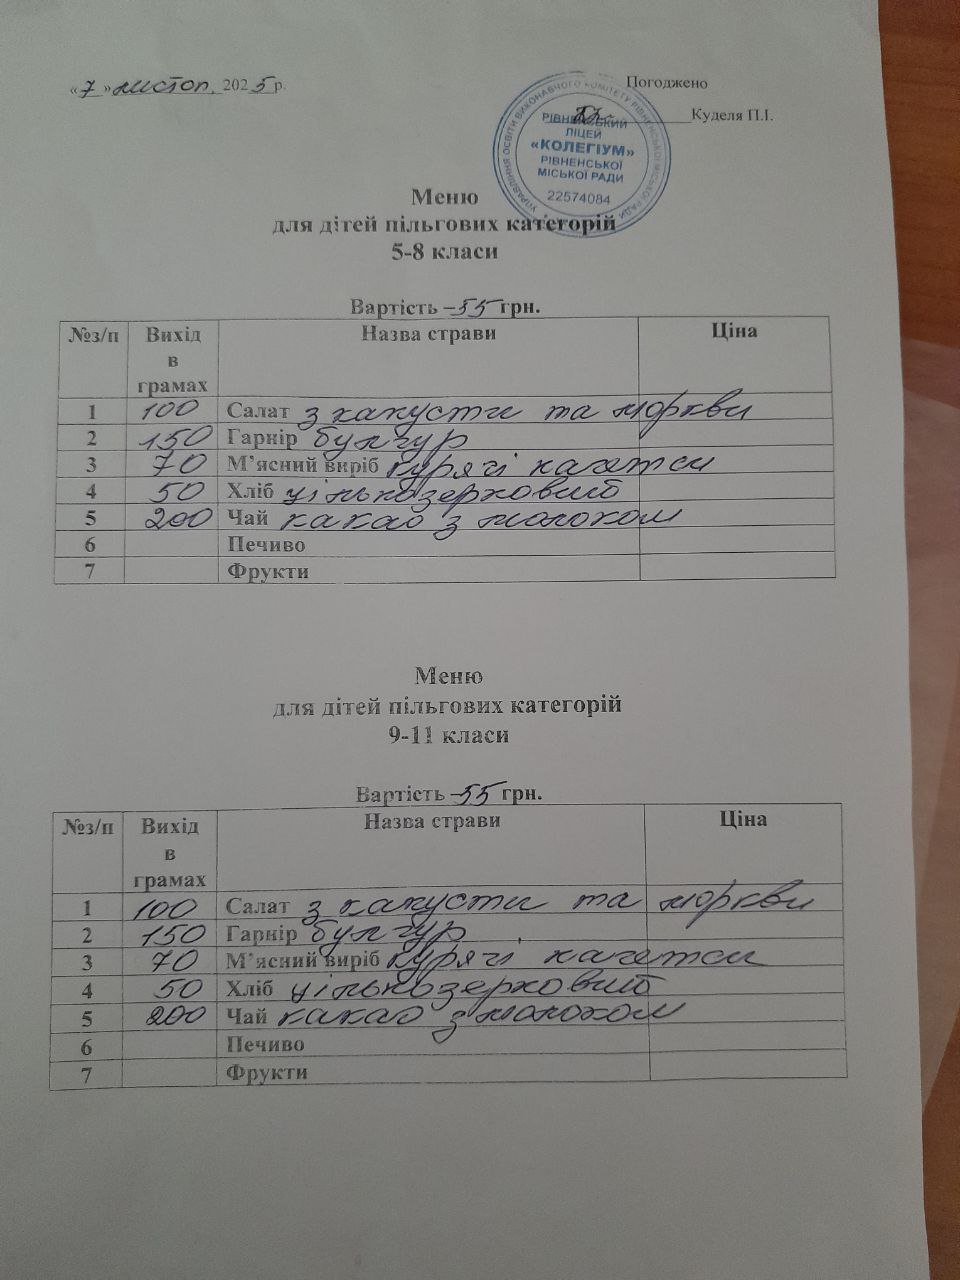 «7» листоп. 2025 р.
Погоджено
Куделя П.І.
УПРАВЛІННЯ ОСВІТИ ВИКОНАВЧОГО КОМІТЕТУ РІВНЕНСЬКОЇ МІСЬКОЇ РАДИ
РІВНЕНСЬКИЙ
ЛІЦЕЙ
«КОЛЕГІУМ»
РІВНЕНСЬКОЇ
МІСЬКОЇ РАДИ
22574084
Меню
для дітей пільгових категорій
5-8 класи
Вартість – 55 грн.
№з/п Вихід в грамах Назва страви Ціна
1 100 Салат з капусти та моркви
2 150 Гарнір булгур
3 70 М’ясний виріб курячі нагетси
4 50 Хліб цільнозерновий
5 200 Чай какао з молоком
6 Печиво
7 Фрукти
Меню
для дітей пільгових категорій
9-11 класи
Вартість – 55 грн.
№з/п Вихід в грамах Назва страви Ціна
1 100 Салат з капусти та моркви
2 150 Гарнір булгур
3 70 М’ясний виріб курячі нагетси
4 50 Хліб цільнозерновий
5 200 Чай какао з молоком
6 Печиво
7 Фрукти